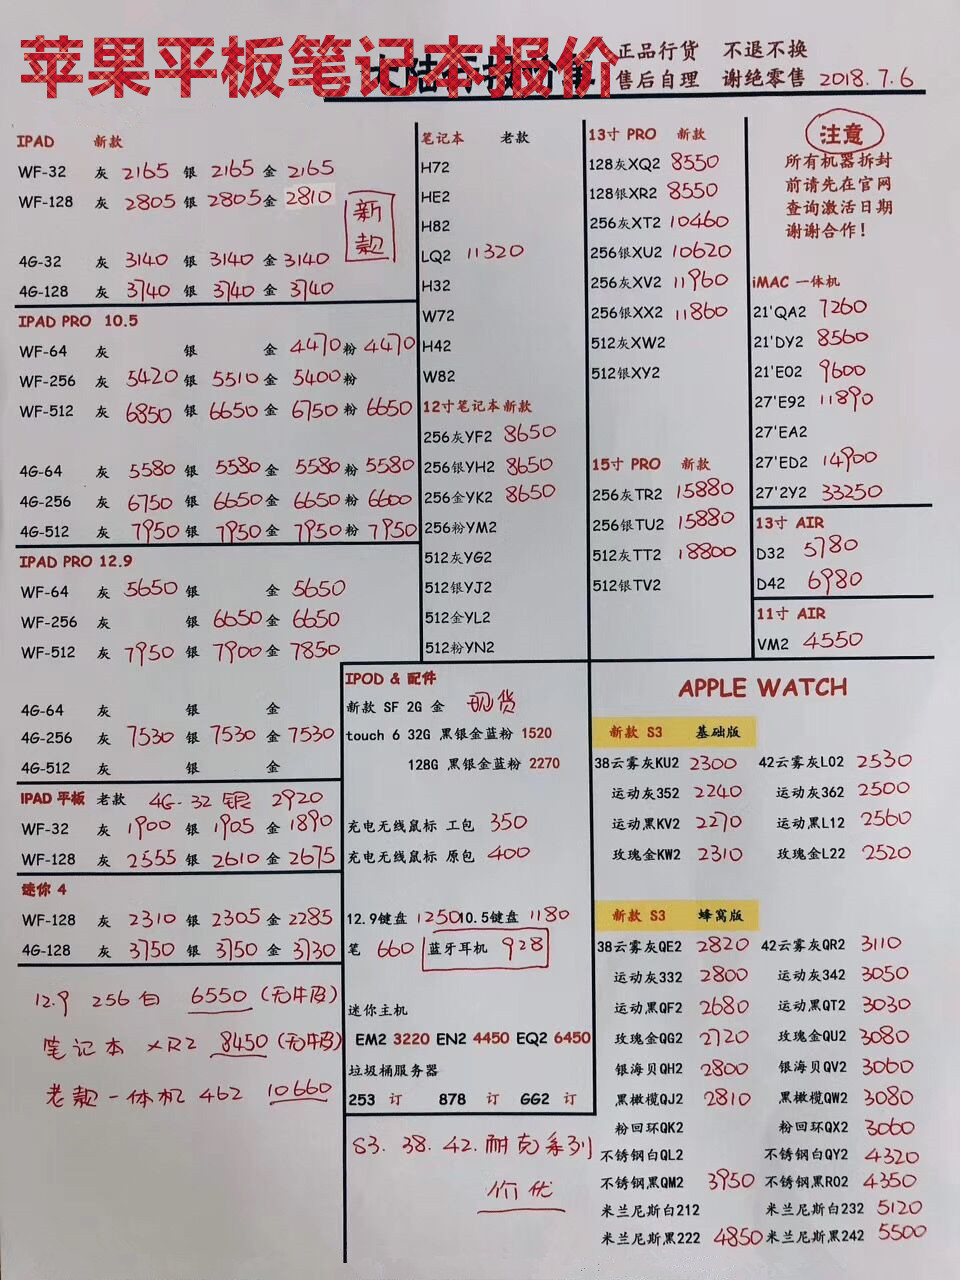 苹果平板笔记本报价
正品行货 不退不换
售后自理 谢绝零售 2018.7.6
IPAD 新款
WF-32 灰 2165 银 2165 金 2165
WF-128 灰 2805 银 2805 金 2810
新款
4G-32 灰 3140 银 3140 金 3140
4G-128 灰 3740 银 3740 金 3740
IPAD PRO 10.5
WF-64 灰 银 金 4470 粉 4470
WF-256 灰 5420 银 5510 金 5400 粉
WF-512 灰 6850 银 6650 金 6750 粉 6650
4G-64 灰 5580 银 5580 金 5580 粉 5580
4G-256 灰 6750 银 6650 金 6650 粉 6600
4G-512 灰 7950 银 7950 金 7950 粉 7950
IPAD PRO 12.9
WF-64 灰 5650 银 金 5650
WF-256 灰 银 6650 金 6650
WF-512 灰 7950 银 7900 金 7850
4G-64 灰 银 金
4G-256 灰 7530 银 7530 金 7530
4G-512 灰 银 金
IPAD 平板 老款 4G-32 银 2920
WF-32 灰 1900 银 1905 金 1890
WF-128 灰 2555 银 2610 金 2675
迷你 4
WF-128 灰 2310 银 2305 金 2285
4G-128 灰 3750 银 3750 金 3730
12.9 256 白 6550
笔记本 XR2 8450
老款一体机 462 10660
笔记本 老款
H72
HE2
H82
LQ2 11320
H32
W72
H42
W82
12寸笔记本新款
256灰YF2 8650
256银YH2 8650
256金YK2 8650
256粉YM2
512灰YG2
512银YJ2
512金YL2
512粉YN2
13寸 PRO 新款
128灰XQ2 8550
128银XR2 8550
256灰XT2 10460
256银XU2 10620
256灰XV2 11960
256银XX2 11860
512灰XW2
512银XY2
15寸 PRO 新款
256灰TR2 15880
256银TU2 15880
512灰TT2 18800
512银TV2
注意
所有机器拆封
前请先在官网
查询激活日期
谢谢合作！
iMAC 一体机
21'QA2 7260
21'DY2 8560
21'E02 9600
27'E92 11890
27'EA2
27'ED2 14900
27'2Y2 33250
13寸 AIR
D32 5780
D42 6980
11寸 AIR
VM2 4550
IPOD & 配件
新款 SF 2G 金 现货
touch 6 32G 黑银金蓝粉 1520
128G 黑银金蓝粉 2270
充电无线鼠标 工包 350
充电无线鼠标 原包 400
12.9键盘 1250 10.5键盘 1180
笔 660 蓝牙耳机 928
迷你主机
EM2 3220 EN2 4450 EQ2 6450
垃圾桶服务器
253 订 878 订 GG2 订
S3. 38. 42. 耐克系列
价优
APPLE WATCH
新款 S3 基础版
38云雾灰KU2 2300 42云雾灰L02 2530
运动灰352 2240 运动灰362 2500
运动黑KV2 2270 运动黑L12 2560
玫瑰金KW2 2310 玫瑰金L22 2520
新款 S3 蜂窝版
38云雾灰QE2 2820 42云雾灰QR2 3110
运动灰332 2800 运动灰342 3050
运动黑QF2 2680 运动黑QT2 3030
玫瑰金QG2 2720 玫瑰金QU2 3080
银海贝QH2 2800 银海贝QV2 3060
黑橄榄QJ2 2810 黑橄榄QW2 3080
粉回环QK2 粉回环QX2 3060
不锈钢白QL2 不锈钢白QY2 4320
不锈钢黑QM2 3950 不锈钢黑R02 4350
米兰尼斯白212 米兰尼斯白232 5120
米兰尼斯黑222 4850 米兰尼斯黑242 5500